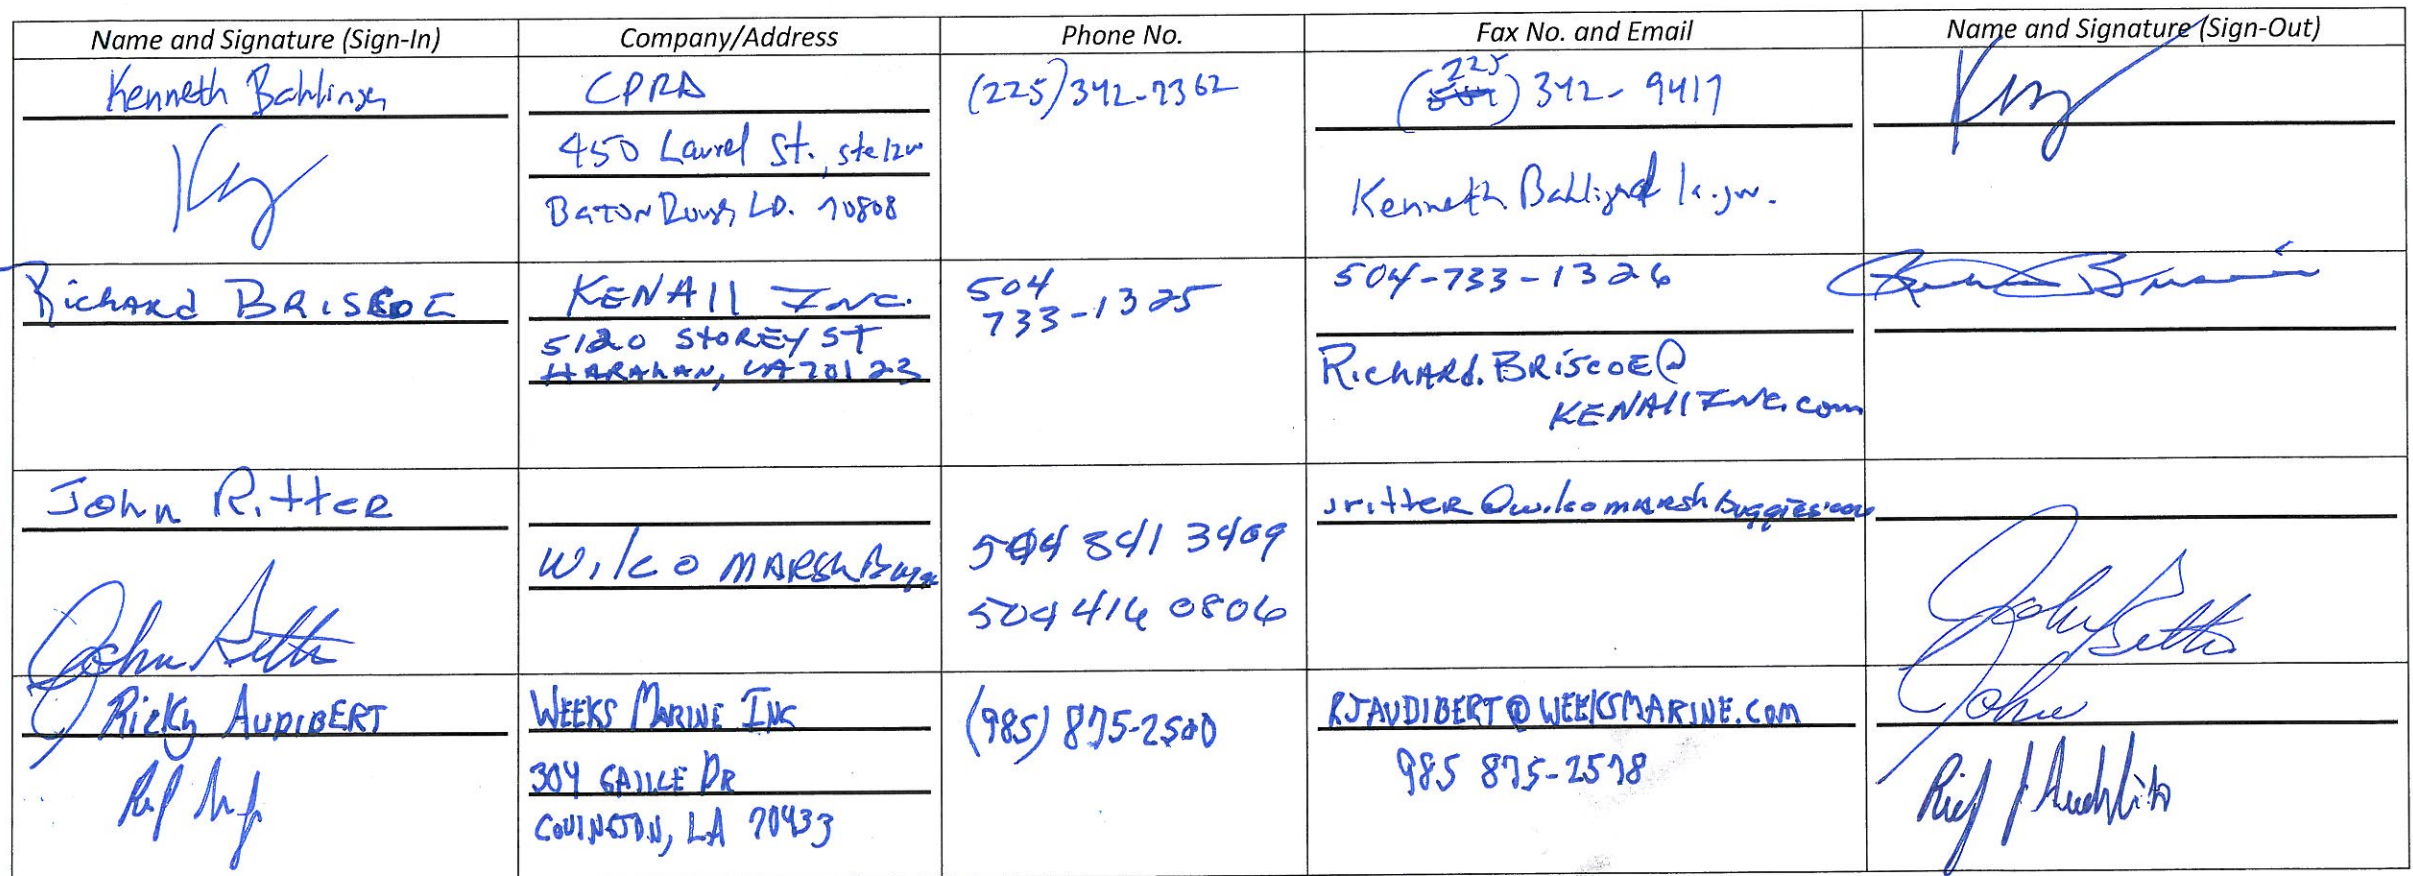 Name and Signature (Sign-In)
Company/Address
Phone No.
Fax No. and Email
Name and Signature (Sign-Out)
Kenneth Bahlinger
CPRA
450 Laurel St., ste
Baton Rouge, LA. 70808
(225) 342-7362
(225) 342-9417
Kenneth
Richard BRISCOE
KENAll Inc.
5120 STOREY ST
HARAHAN, LA 70123
504
733-1325
504-733-1326
RicHARd.BRiSCOE@
KENAllInc.com
John Ritter
Wilco MARSH Bugg
504 841 3409
504 416 0806
jritter@wilcomarshbuggies.com
John Ritter
John Ritter
John
Ricky AUDIBERT
WEEKS MARINE INC
304 GAILLE DR
COVINGTON, LA 70433
(985) 875-2500
RJAUDIBERT@WEEKSMARINE.COM
985 875-2578